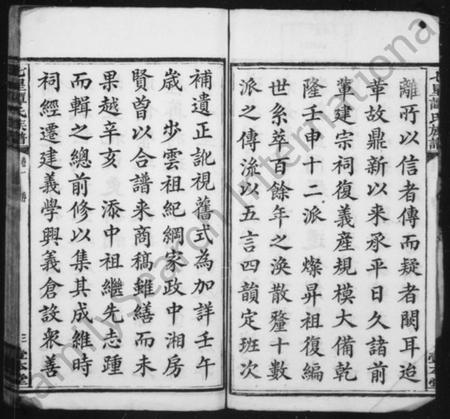 七星譚氏族譜
離所以信者傳而疑者闕耳迨
革故鼎新以來承平日久諸前
輩建宗祠復義產規模大備乾
隆壬申十二派 燦昇祖復編
世系萃百餘年之渙散釐十數
派之傳流以五言四韻定班次
補遺正訛視舊式為加詳壬午
歲 步雲祖紀綱家政中湘房
賢曾以合譜来商稿雖繕而未
果越辛亥 添中祖繼先志踵
而輯之總前修以集其成維時
祠經遷建義學興義倉設衆善
七星譚氏族譜
三
FamilySearch International